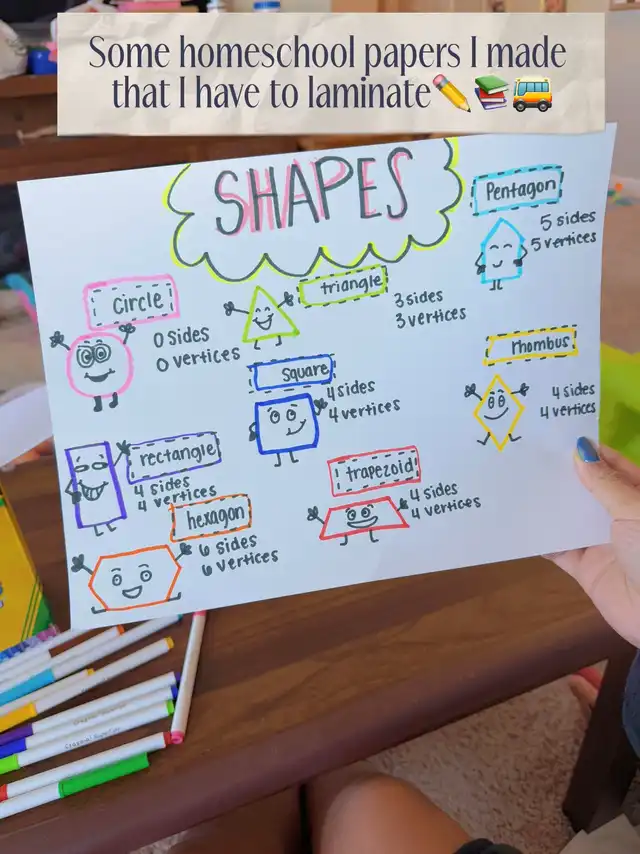 Some homeschool papers I made
that I have to laminate✏️📚🚌
SHAPES
circle
0 sides
0 vertices
triangle
3 sides
3 vertices
Pentagon
5 sides
5 vertices
square
4 sides
4 vertices
rhombus
4 sides
4 vertices
rectangle
4 sides
4 vertices
trapezoid
4 sides
4 vertices
hexagon
6 sides
6 vertices